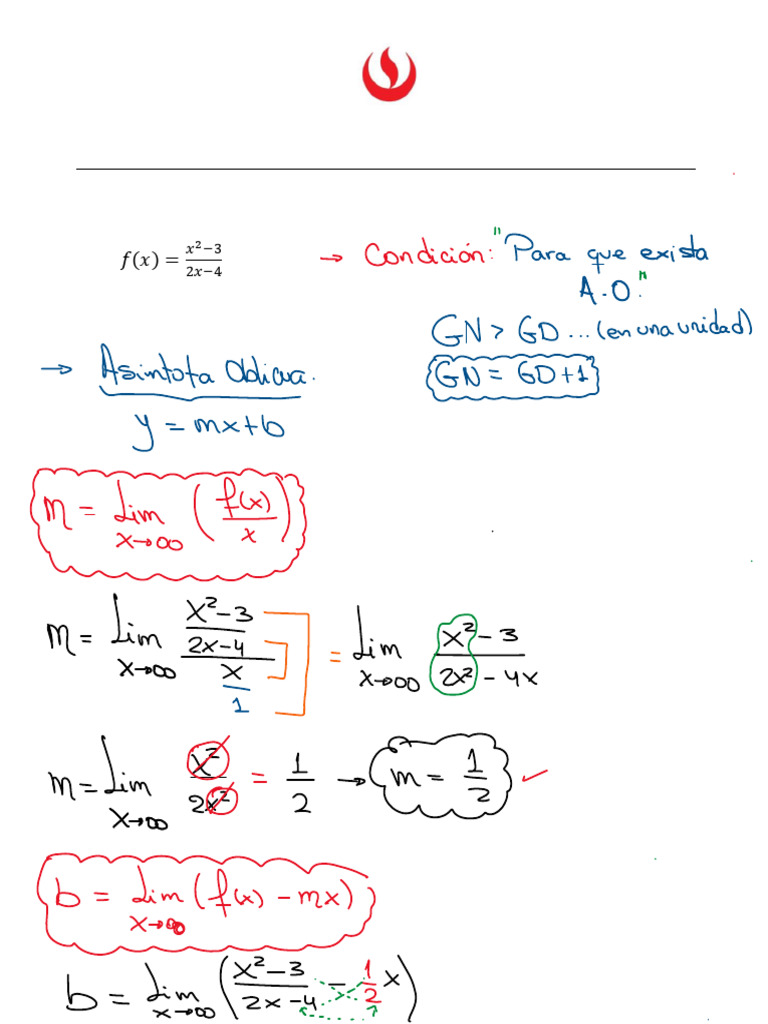 f(x) = (x²−3)/(2x−4)
→ Condición: "Para que exista
A.O."
GN > GD ... (en una unidad)
GN = GD+1
→ Asintota Oblicua.
y = mx+b
m = Lim x→∞ (f(x)/x)
m = Lim x→∞ ((x²−3)/(2x−4))/(x/1) = Lim x→∞ (x²−3)/(2x²−4x)
m = Lim x→∞ x²/2x² = 1/2 → m = 1/2 ✓
b = Lim x→∞ (f(x) − mx)
b = Lim x→∞ ((x²−3)/(2x−4) − 1/2 x)